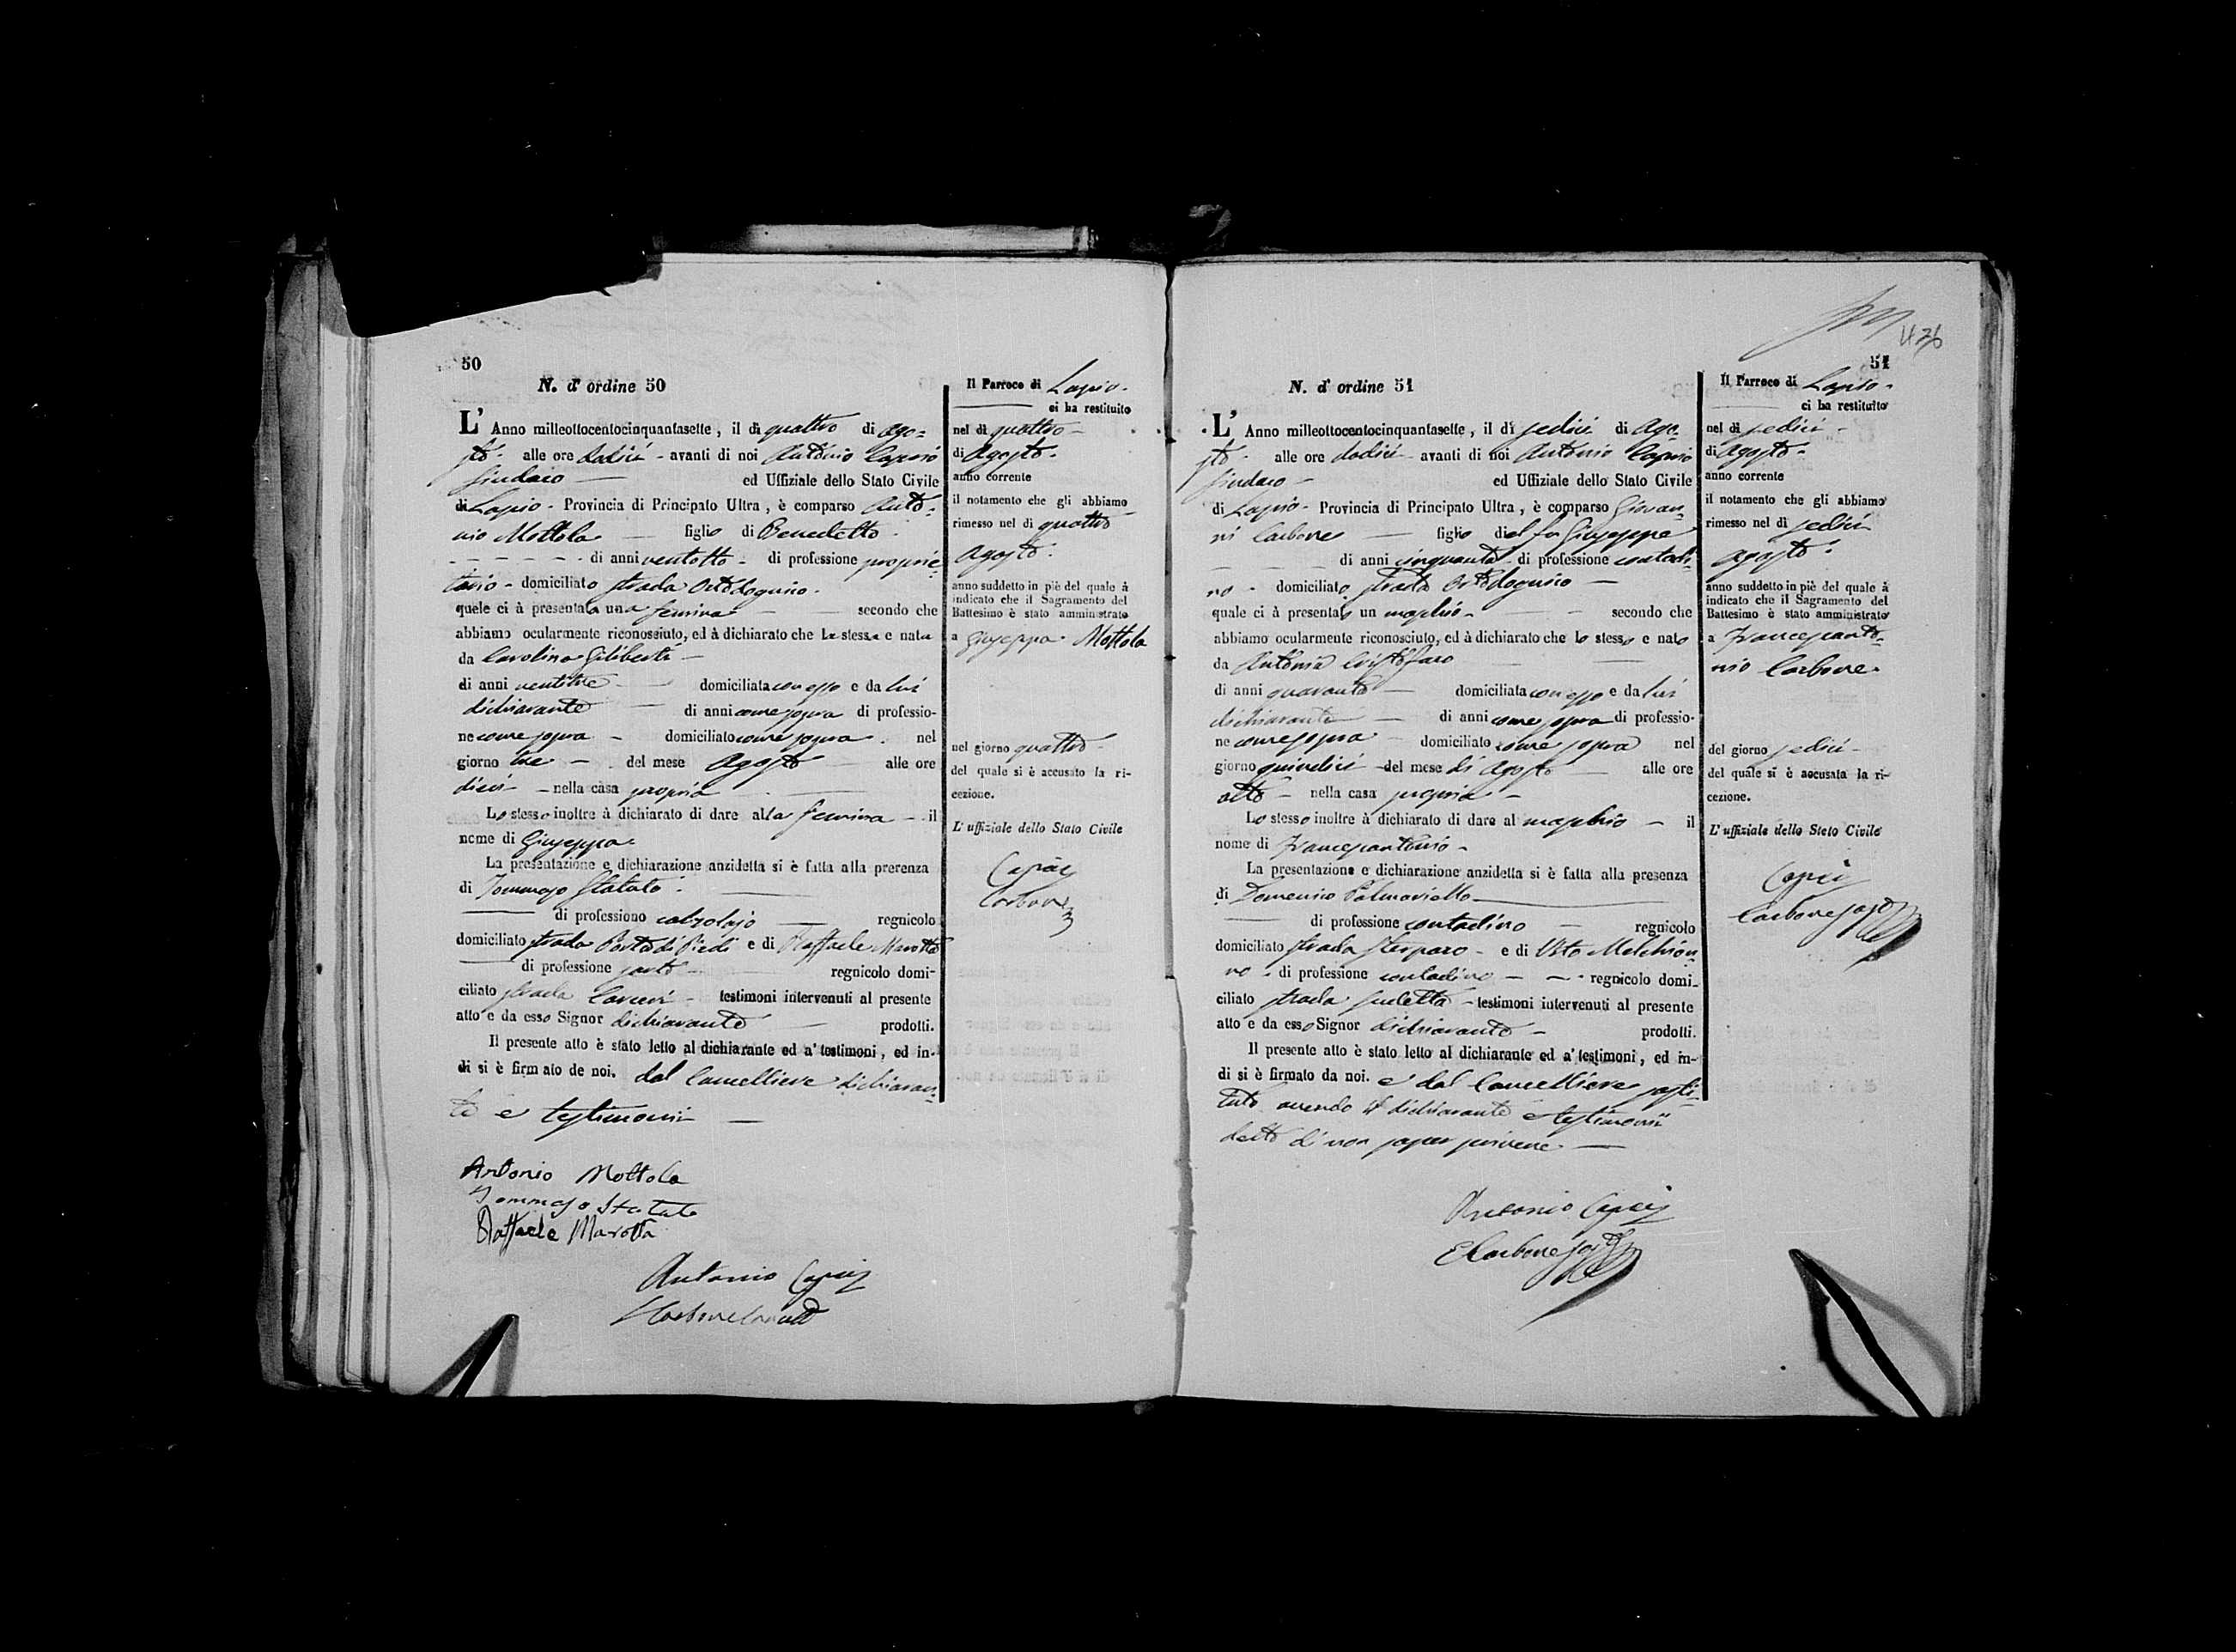 50
N. d' ordine 50
L' Anno milleottocentocinquantasette, il dì quattro di Ago=
sto. alle ore dodici - avanti di noi Antonio Caprio
Sindaco ed Uffiziale dello Stato Civile
di Lapio - Provincia di Principato Ultra, è comparso Anto=
nio Mottola figlio di Benedetto
di anni ventotto - di professione proprie=
tario - domiciliato strada Ortologuiso.
quele ci à presentata una femina secondo che
abbiamo ocularmente riconosciuto, ed à dichiarato che la stessa e nata
da Carolina Giliberti
di anni ventitre domiciliata con esso e da lui
dichiarante di anni come sopra di professio-
ne come sopra domiciliato come sopra. nel
giorno tre del mese Agosto alle ore
dieci - nella casa propria
Lo stesso inoltre à dichiarato di dare alla femina - il
nome di Giuseppa
La presentazione e dichiarazione anzidetta si è fatta alla prerenza
di Tommaso Statuto
di professiono calzolajo regnicolo
domiciliato strada Porta di Piedi e di Raffaele Marotta
di professione sarto regnicolo domi-
ciliato strada testimoni intervenuti al presente
atto e da esso Signor dichiarante prodotti.
Il presente atto è stato letto al dichiarante ed a' testimoni, ed in-
di si è firmato de noi. dal Cancelliere dichiaran=
te e testimonii
Antonio Mottola
Tommaso Statuto
Raffaele Marotta
Antonio Caprio
Carbone
Il Parroco di Lapio.
ci ha restituito
nel dì quattro
di Agosto.
anno corrente
il notamento che gli abbiamo
rimesso nel dì quattro
Agosto.
anno suddetto in piè del quale à
indicato che il Sagramento del
Battesimo è stato amministrato
a Giuseppa Mottola
nel giorno quattro
del quale si è accusato la ri-
cezione.
L' uffiziale dello Stato Civile
Caprio
Carbone
436
51
N. d' ordine 51
L' Anno milleottocentocinquantasette, il dì sedici di Ago=
sto. alle ore dodici avanti di noi Antonio Caprio
Sindaco ed Uffiziale dello Stato Civile
di Lapio - Provincia di Principato Ultra, è comparso Giovan=
ni Carbone figlio del fu Giuseppe
di anni cinquanta - di professione contadi=
no - domiciliato strada Ortologuiso
quale ci à presentato un maschio - secondo che
abbiamo ocularmente riconosciuto, ed à dichiarato che lo stesso e nato
da Antonia Cristofaro
di anni quaranta domiciliata con esso e da lui
dichiarante di anni come sopra di professio-
ne come sopra domiciliato come sopra nel
giorno quindici del mese di Agosto alle ore
otto - nella casa propria -
Lo stesso inoltre à dichiarato di dare al maschio - il
nome di Francescantonio -
La presentazione e dichiarazione anzidetta si è fatta alla presenza
di Domenico Palmariello
di professione contadino regnicolo
domiciliato strada Sterparo - e di Vito Melchion=
no - di professione contadino regnicolo domi-
ciliato strada - testimoni intervenuti al presente
atto e da esso Signor dichiarante - prodotti.
Il presente atto è stato letto al dichiarante ed a' testimoni, ed in-
di si è firmato da noi. e dal Cancelliere sosti=
tuto avendo il dichiarante e testimonii
detto di non saper scrivere.
Antonio Caprio
E Carbone sosto
Il Parroco di Lapio -
ci ha restituito
nel dì sedici
di Agosto -
anno corrente
il notamento che gli abbiamo
rimesso nel dì sedici
Agosto.
anno suddetto in piè del quale à
indicato che il Sagramento del
Battesimo è stato amministrato
a Francescanto=
nio Carbone.
del giorno sedici
del quale si è accusata la ri-
cezione.
L' uffiziale dello Stato Civile
Caprio
Carbone sosto